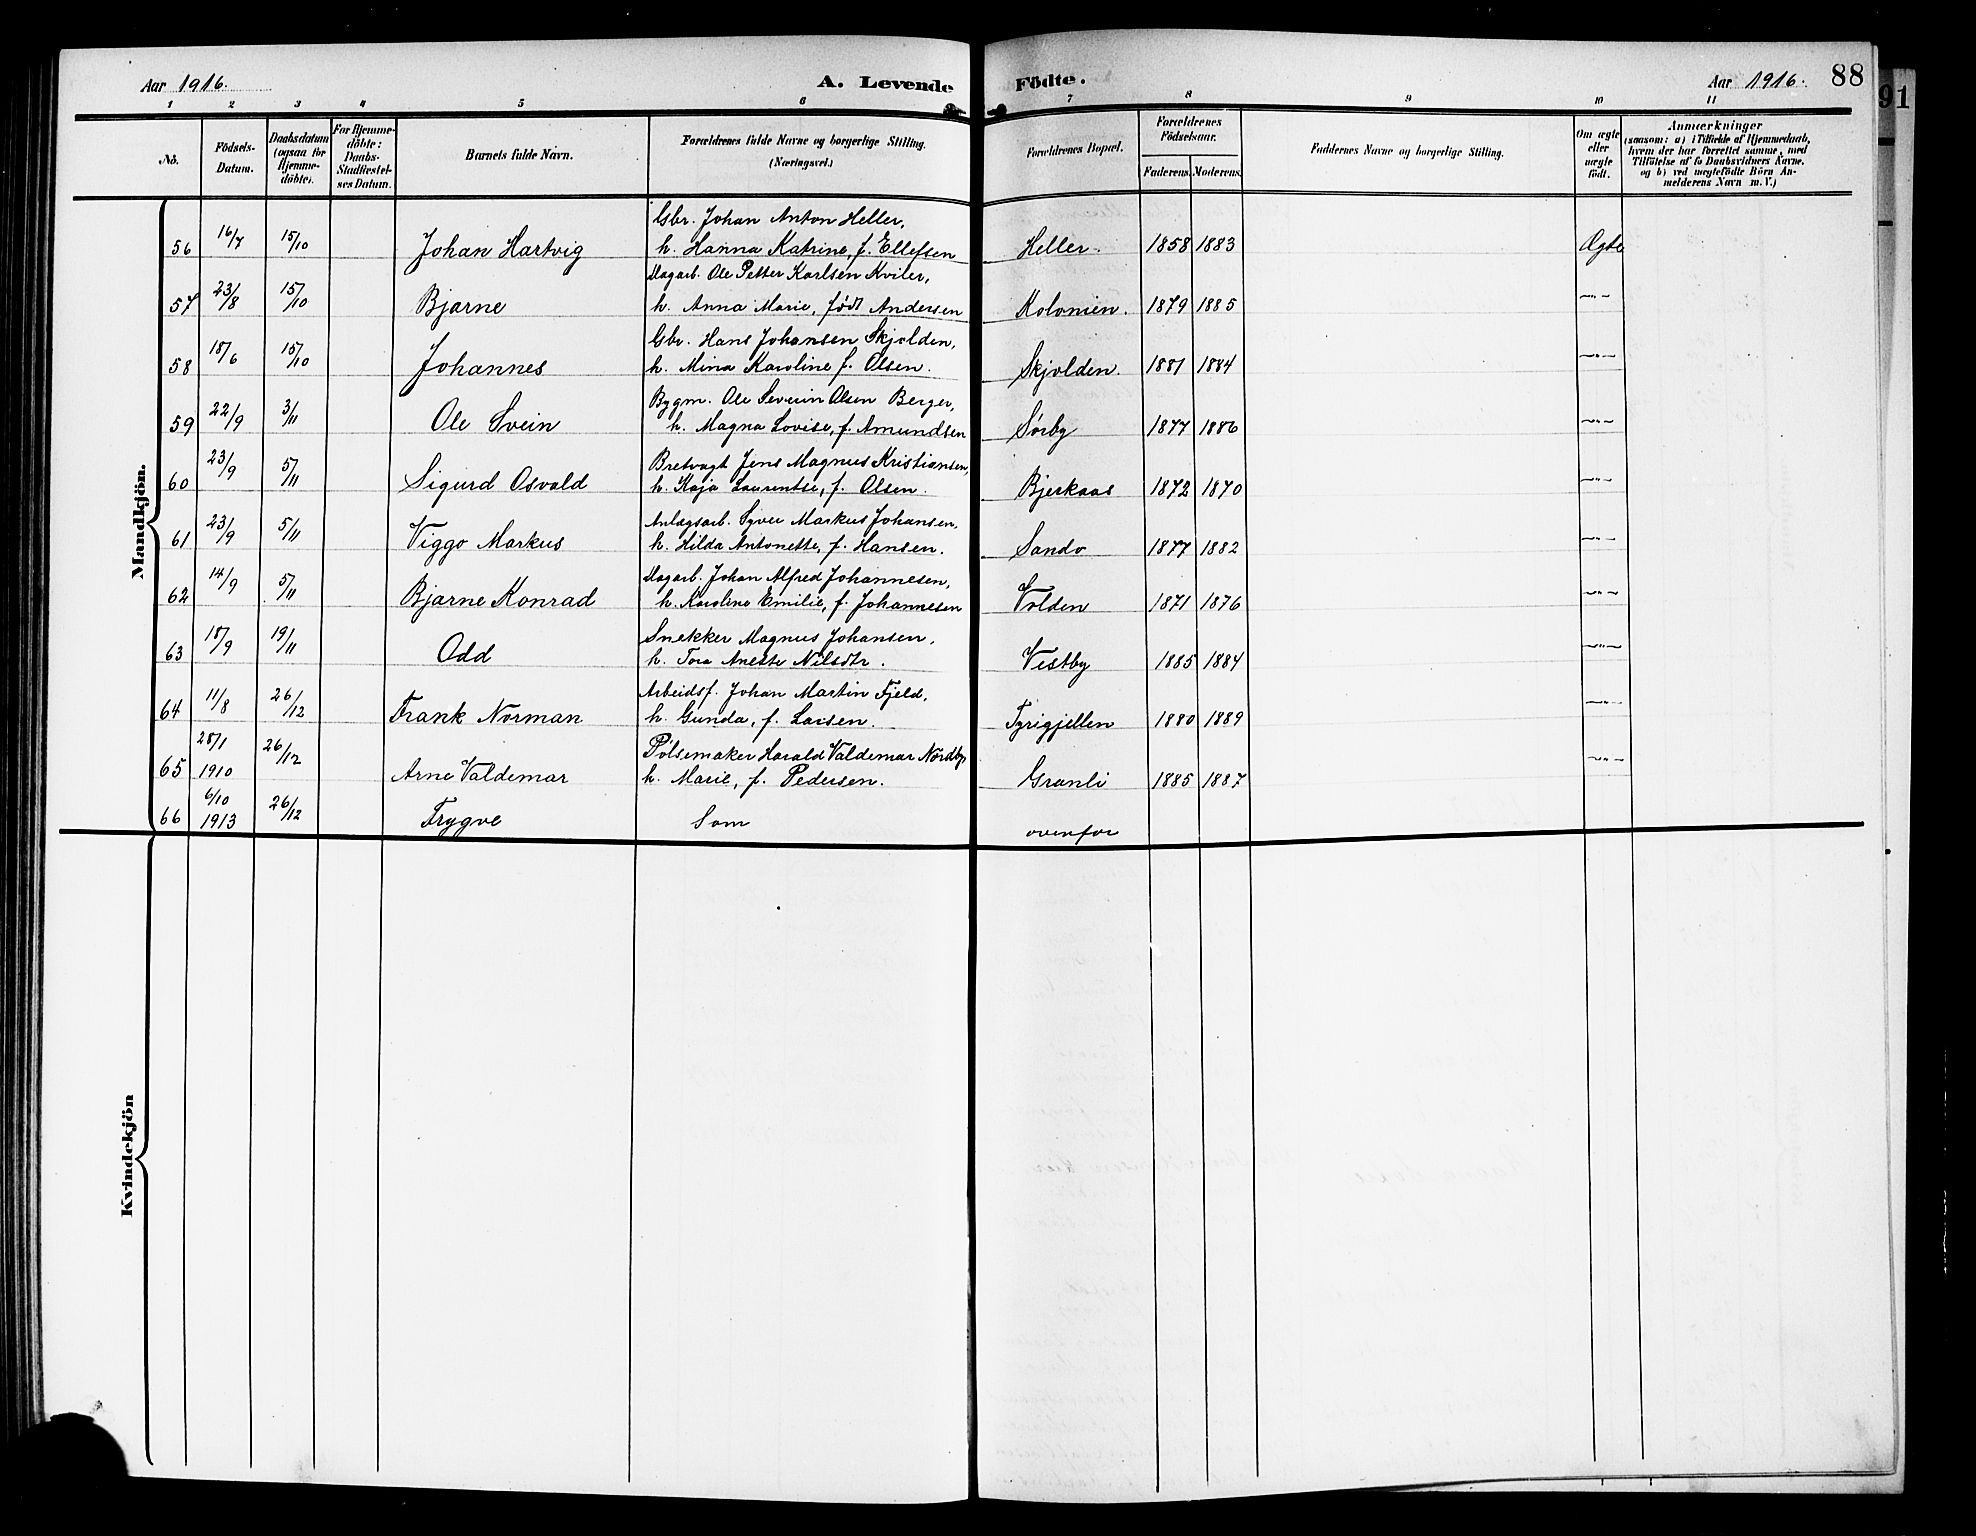 Aar 1916. A. Levende Födte. Aar 1916. 88
91
1 2 3 4 5 6 7 8 9 10 11
No. Födsels-Datum. Daabsdatum (ogsaa for Hjemmedöbte). For Hjemmedöbte: Daabs-Stadfæstelses Datum. Barnets fulde Navn. Forældrenes fulde Navne og borgerlige Stilling. (Næringsvei.) Forældrenes Bopæl. Forældrenes Födselsaar. Faderens. Moderens. Faddernes Navne og borgerlige Stilling. Om ægte eller uægte födt. Anmærkninger (saasom: a) i Tilfælde af Hjemmedaab, hvem der har forrettet samme, med Tilföielse af to Daabsvidners Navne. og b) ved uægtefödte Börn Anmelderens Navn m. V.)
Mandkjön.
Gbr. Johan Anton Heller,
56 16/7 15/10 Johan Hartvig h. Hanna Katrine, f. Ellefsen Heller. 1858 1883 Ægte
Dagarb. Ole Petter Karlsen Kviler,
57 23/8 15/10 Bjarne h. Anna Marie, født Andersen Kolonien. 1879 1885 -"-
Gbr. Hans Johansen Skjolden,
58 18/6 15/10 Johannes h. Mina Karoline f. Olsen. Skjolden. 1881 1884 -"-
Bygm. Ole Severin Olsen Berger,
59 22/9 3/11 Ole Svein h. Magna Lovise, f. Amundsen Sørby 1877 1886 -"-
Bretvagt Jens Magnus Kristiansen,
60 23/9 5/11 Sigurd Osvald h. Kaja Laurentse, f. Olsen. Bjerkaas 1872 1870 -"-
Anlægsarb. Syver Markus Johansen,
61 23/9 5/11 Viggo Markus h. Hilda Antonette, f. Hansen. Sando 1877 1882 -"-
Dagarb. Johan Alfred Johannesen,
62 14/9 5/11 Bjarne Konrad h. Karoline Emilie, f. Johannesen Volden 1871 1876 -"-
Snekker Magnus Johansen,
63 18/9 19/11 Odd h. Tora Anette Nilsdtr. Vestby 1885 1884 -"-
Arbeidsf. Johan Martin Fjeld,
64 11/8 26/12 Frank Norman h. Gunda, f. Larsen. Tyrigjellen 1880 1889 -"-
28/1 Pølsemaker Harald Valdemar Nordby
65 1910 26/12 Arne Valdemar h. Marie, f. Pedersen. Granli 1885 1887 -"-
6/10
66 1913 26/12 Trygve Som ovenfor
Kvindekjön